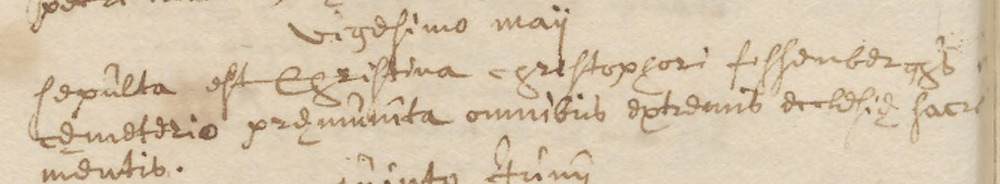 vigesimo maij
sepûlta est Christina christophori fessenberghs
cęmeterio pręmûnîta omnibus extremis ecclesię sacra
mentis.
quinto Junij